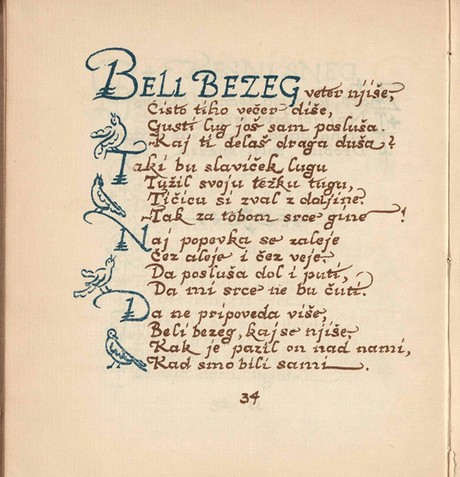 BELI BEZEG veter njiše,
Čisto tiho večer diše,
Gusti lug još sam posluša.
-Kaj ti delaš draga duša?
Taki bu slaviček lugu
Tužil svoju težku tugu,
Tičicu si zval z daljine.
-Tak za tobom srce gine!
Naj popevka se zaleje
Čez aleje i čez veje.
Da posluša dol i puti,
Da mi srce ne bu čuti.
Da ne pripoveda više,
Beli bezeg, kaj se njiše,
Kak je pazil on nad nami,
Kad smo bili sami.
34